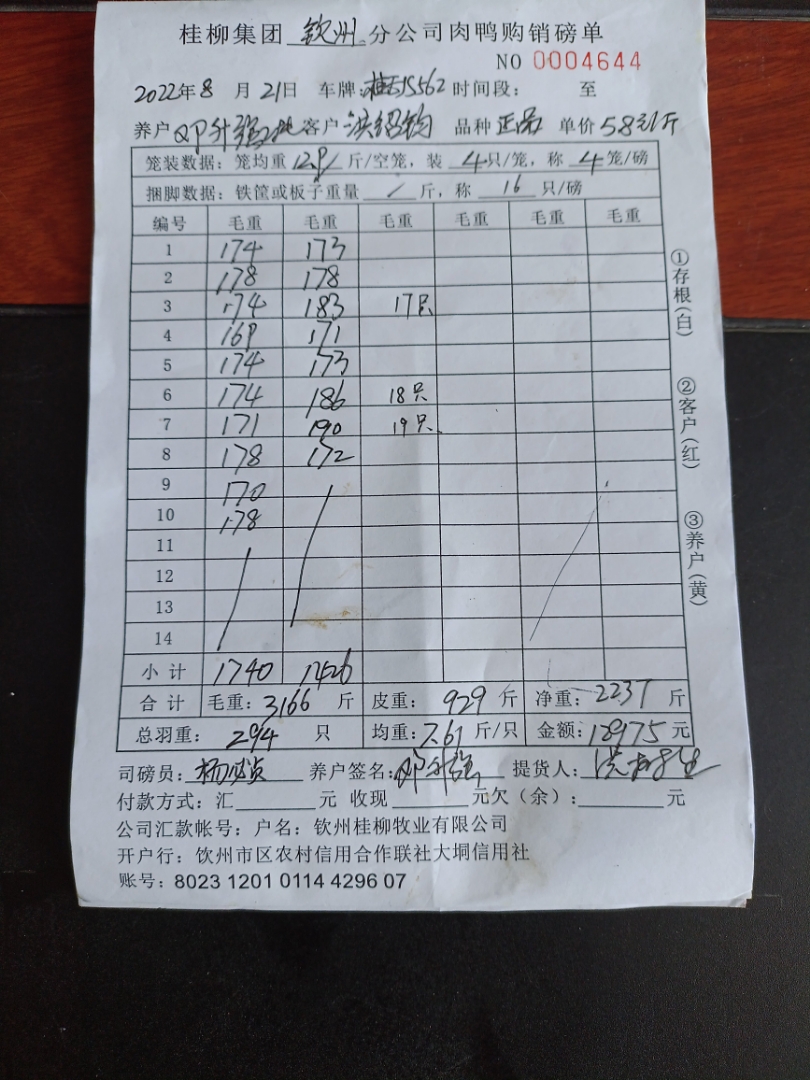 桂柳集团 钦州 分公司肉鸭购销磅单
NO 0004644
2022年8月21日 车牌: 时间段: 至
养户 邓升强 客户 洪绍钧 品种 正品 单价 5.8元/斤
笼装数据:笼均重 12.9 斤/空笼,装 4只/笼,称 4 笼/磅
捆脚数据:铁筐或板子重量 / 斤,称 16 只/磅
编号 毛重 毛重 毛重 毛重 毛重 毛重
1 174 173
2 178 178
3 174 183 17只
4 169 171
5 174 173
6 174 186 18只
7 171 190 19只
8 178 172
9 170
10 178
11
12
13
14
小计 1740 1426
合计 毛重:3166 斤 皮重:929 斤 净重:2237 斤
总羽重:294 只 均重:7.61 斤/只 金额:12975 元
司磅员: 养户签名:邓升强 提货人:
付款方式:汇 元 收现 元欠(余): 元
公司汇款帐号:户名:钦州桂柳牧业有限公司
开户行:钦州市区农村信用合作联社大垌信用社
账号:8023 1201 0114 4296 07
①存根(白)
②客户(红)
③养户(黄)